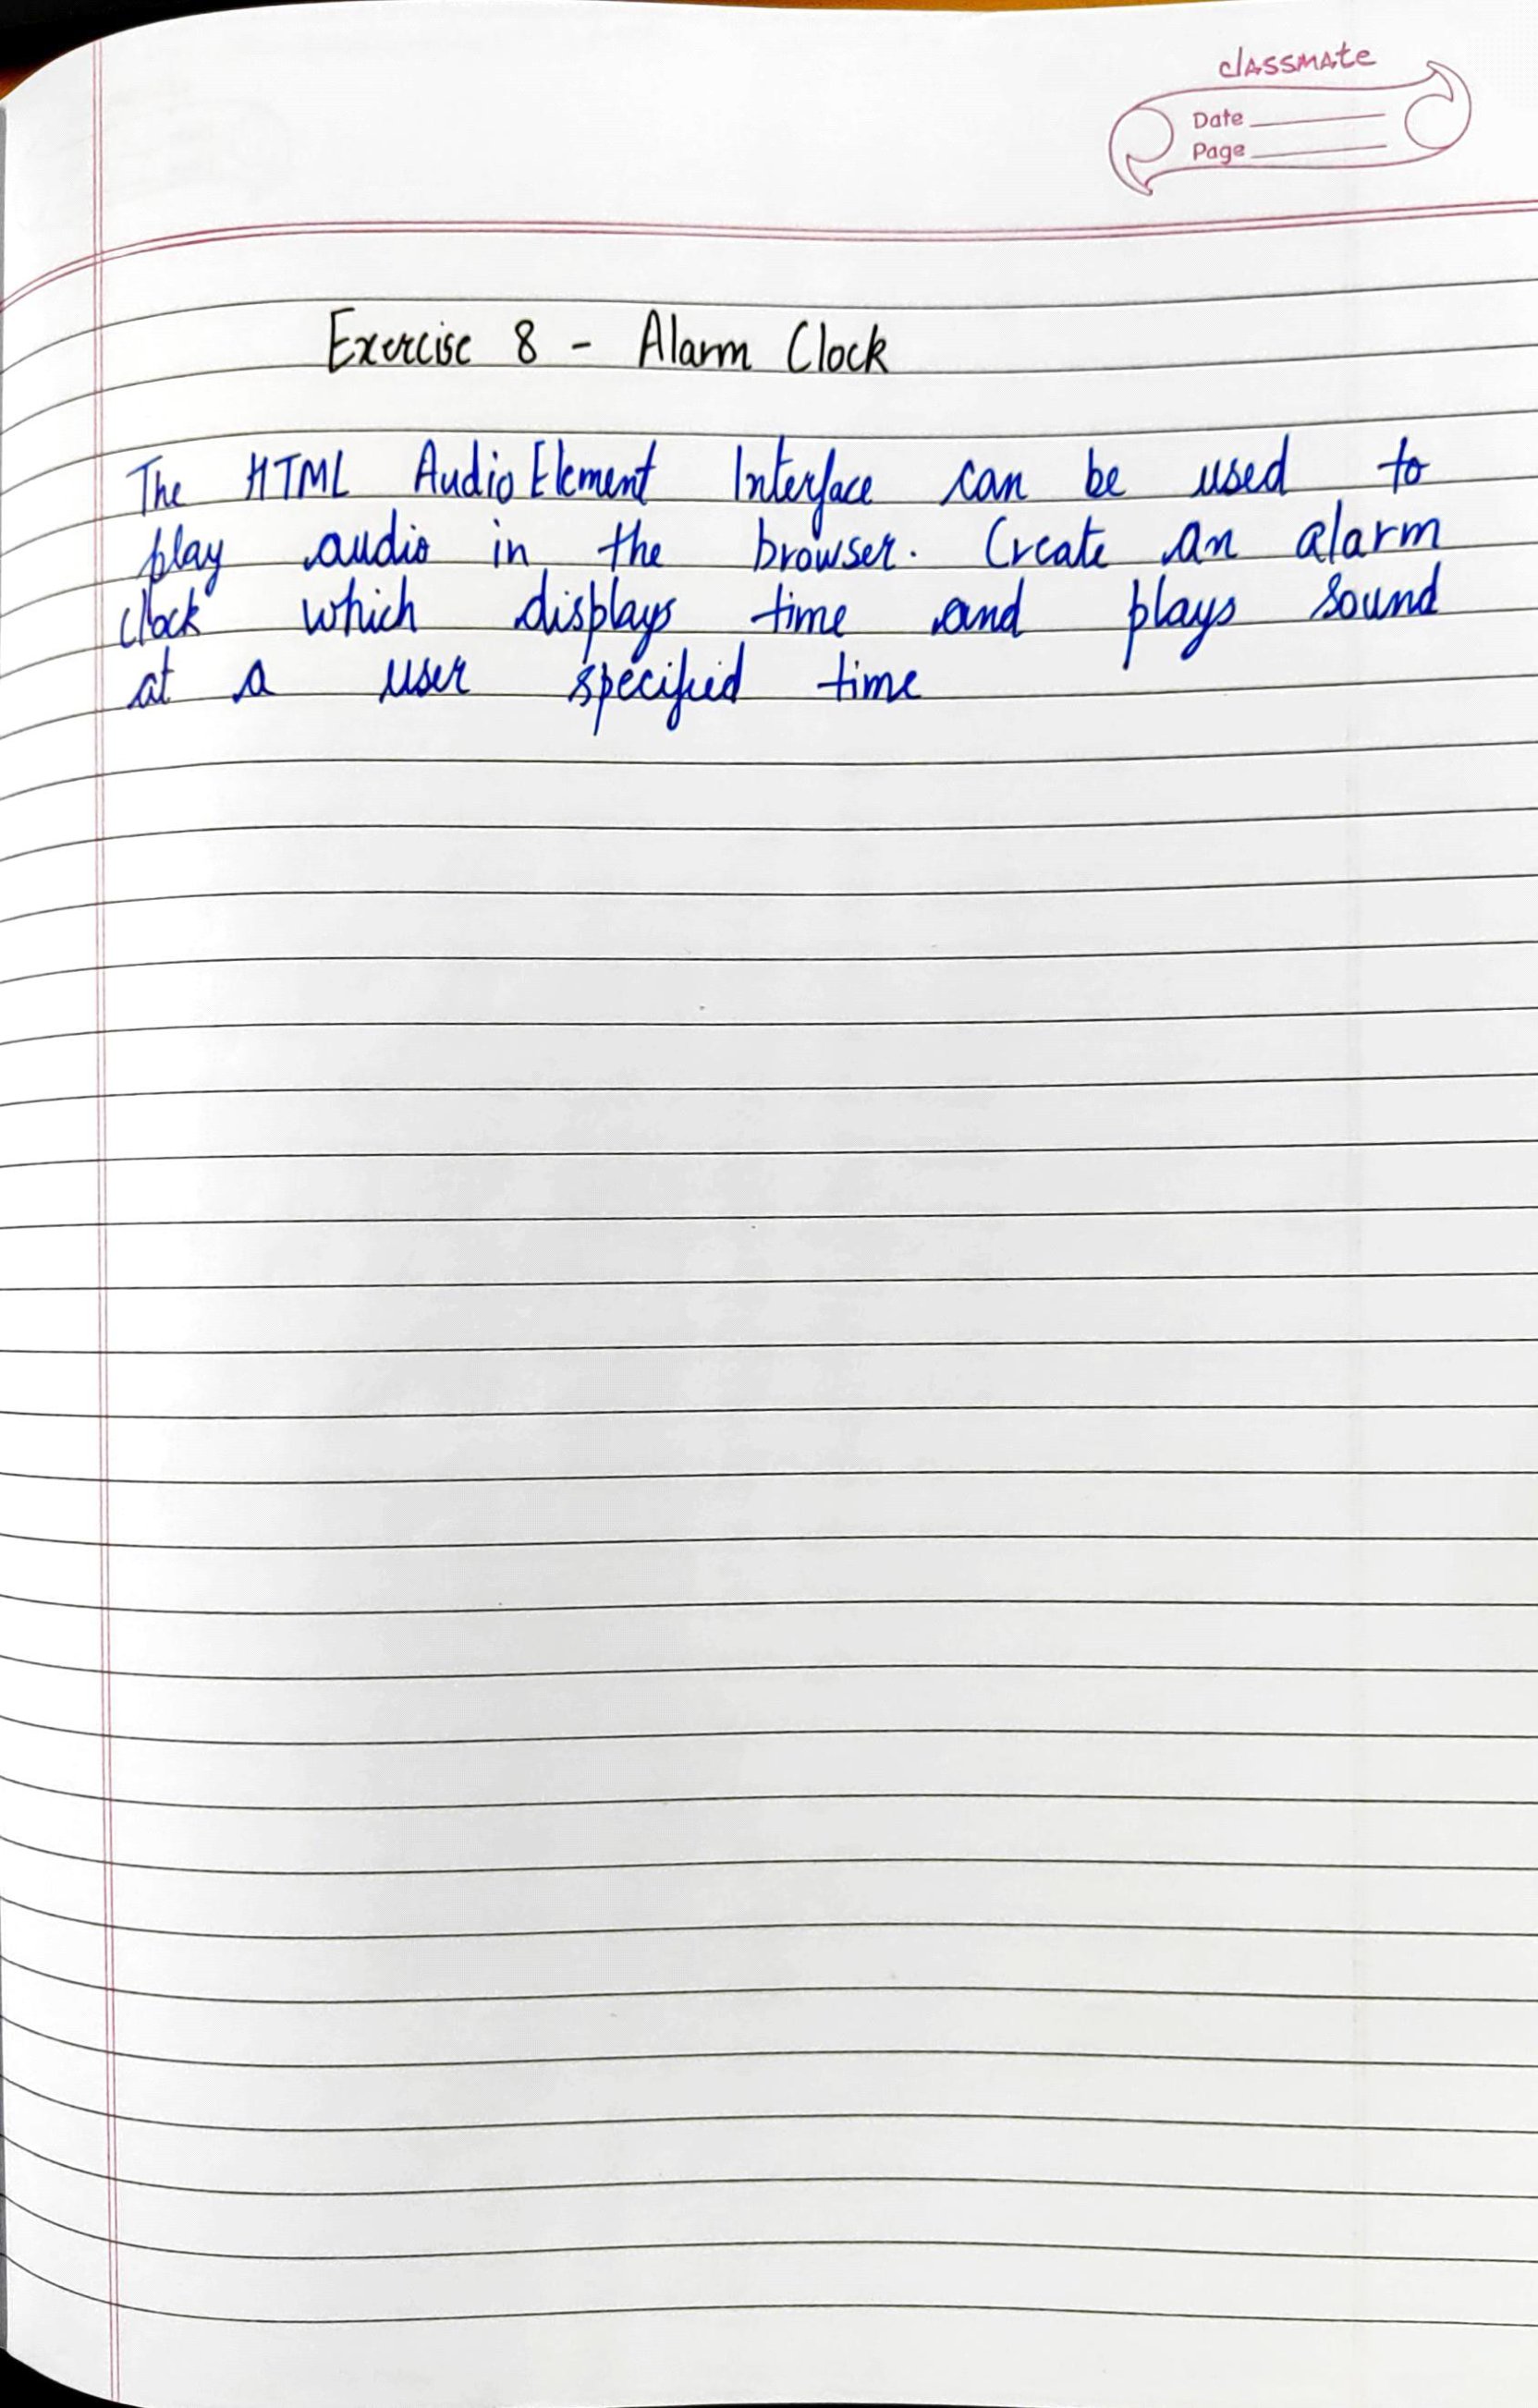 classmate
Date
Page
Exercise 8 - Alarm Clock
The HTML AudioElement Interface can be used to
play audio in the browser. Create an alarm
clock which displays time and plays sound
at a user specified time